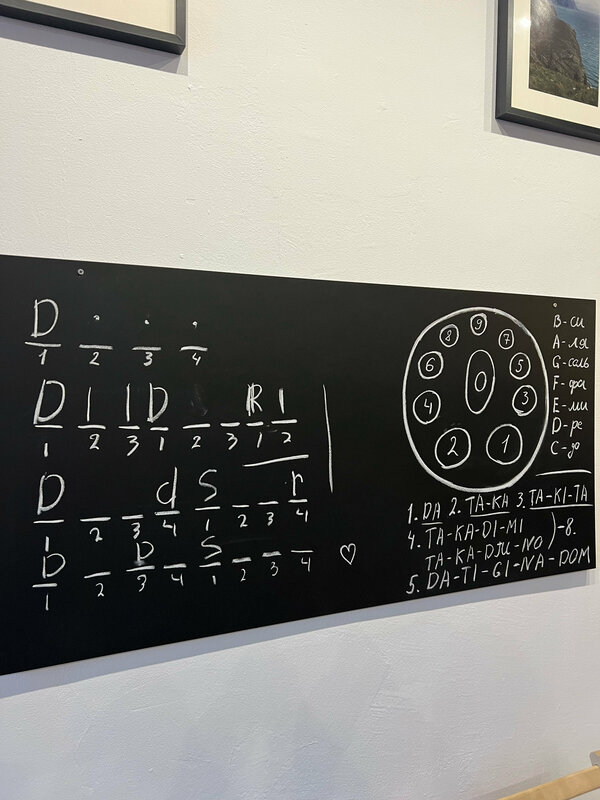 D . . .
1 2 3 4
D I I D R I
1 2 3 1 2 3 1 2
D d S r
1 2 3 4 1 2 3 4
D D S
1 2 3 4 1 2 3 4
9
8 7
6 0 5
4 3
2 1
B - си
A - ля
G - соль
F - фа
E - ми
D - ре
C - до
1. DA 2. TA-KA 3. TA-KI-TA
4. TA-KA-DI-MI
TA-KA-DJU-NO ) -8.
5. DA-TI-GI-NA-DOM